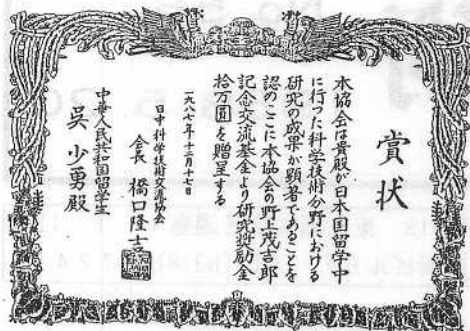 賞状
本協会は貴殿が日本国留学中
に行った科学技術分野における
研究の成果が顕著であることを
認めここに本協会の野上茂吉郎
記念交流基金より研究奨励金
拾万圓を贈呈する
一九八七年十二月十七日
日中科学技術交流協会
会長 橋口隆吉
中華人民共和国留学生
呉少勇殿